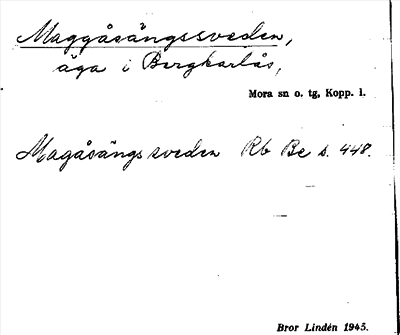 Maggåsängssveden,
äga i Bergkarlås,
Mora sn o. tg, Kopp. l.
Magåsängs sveden Rb Be s. 448.
Bror Lindén 1945.